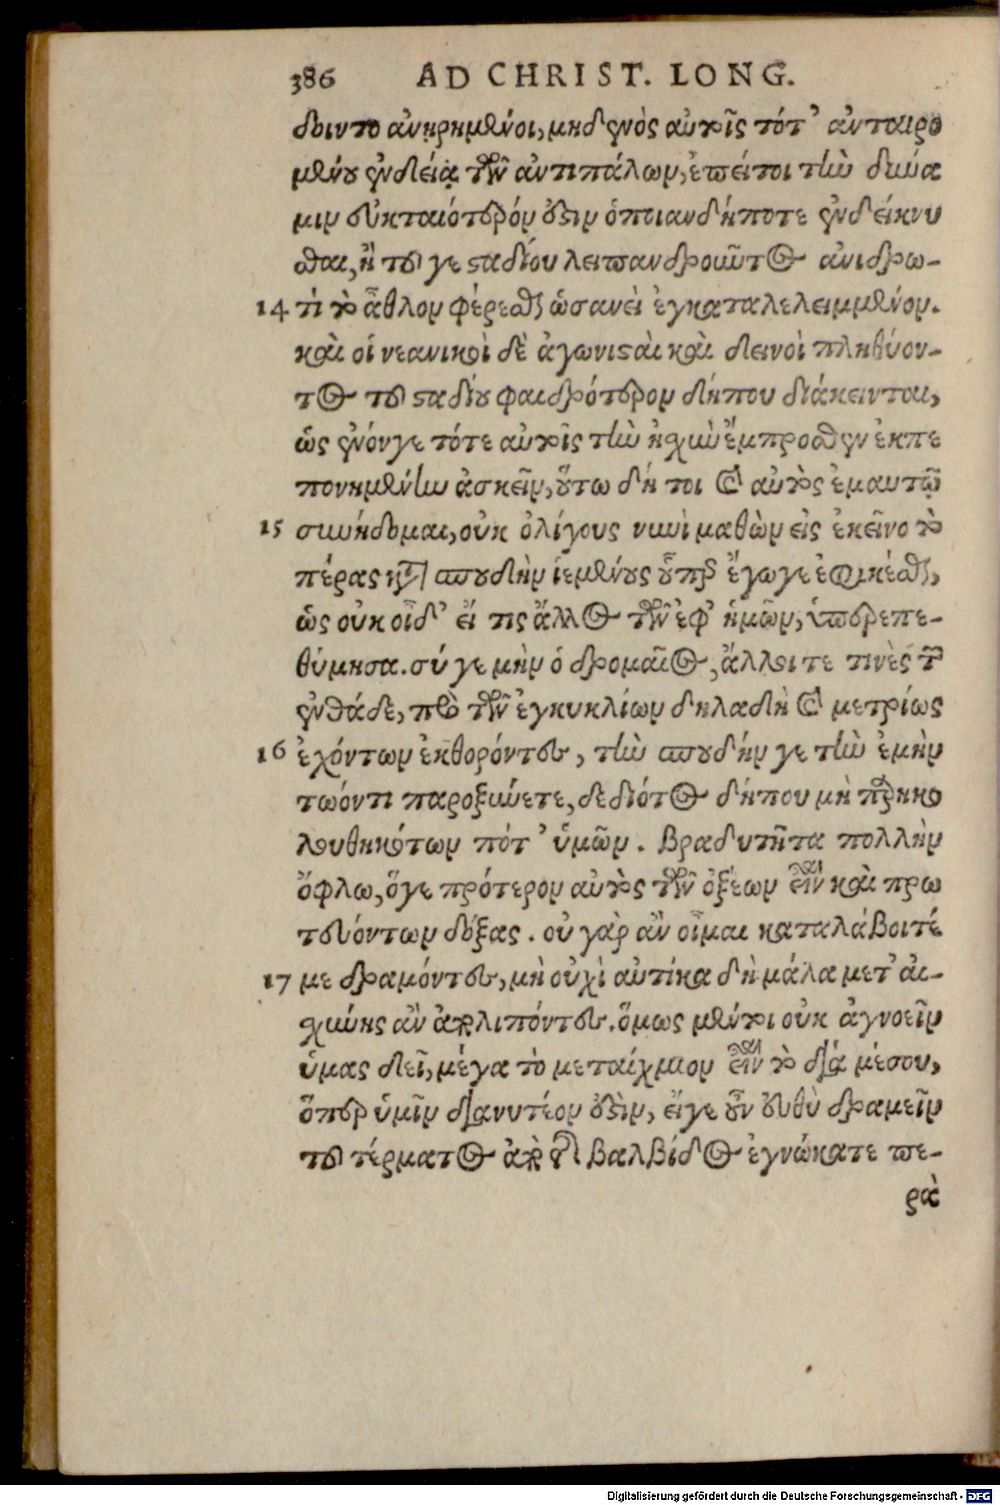 386 AD CHRIST. LONG.
δοιντο ἀνῃρημένοι, μηδενὸς αὐτοῖς τότ᾽ ἀνταιρο
μένου ἐνδείᾳ τῶν ἀντιπάλων, ἐπεί τοι τὴν δύνα
μιν εὐκταιότερόν ἐστιν ὁποιανδήποτε ἐνδείκνυ
σθαι, ἢ τοῦ γε σαδίου λειπανδροῦντος ἀνιδρω-
14 τὶ τὸ ἆθλον φέρεσθαι ὡσανεὶ ἐγκαταλελειμμένον.
καὶ οἱ νεανικοὶ δὲ ἀγωνισαὶ καὶ δεινοὶ πληθύον-
τος τοῦ σαδίου φαιδρότερον δήπου διάκεινται,
ὡς ἐνόνγε τότε αὐτοῖς τὴν ἠχὴν ἔμπροσθεν ἐκπε
πονημένην ἀσκεῖν, οὕτω δή τοι καὶ αὐτὸς ἐμαυτῷ
15 συνήδομαι, οὐκ ὀλίγους νυνὶ μαθὼν εἰς ἐκεῖνο τὸ
πέρας κατὰ σπουδὴν ἱεμένους οὗπερ ἔγωγε ἐφικέσθαι,
ὡς οὐκ οἶδ᾽ εἴ τις ἄλλος τῶν ἐφ᾽ ἡμῶν, ὑπερεπε-
θύμησα. σύ γε μὴν ὁ δρομαῖος, ἄλλοι τε τινὲς τῶν
ἐνθάδε, πρὸ τῶν ἐγκυκλίων δηλαδὴ καὶ μετρίως
16 ἐχόντων ἐκθορόντες, τὴν σπουδήν γε τὴν ἐμὴν
τωόντι παροξύνετε, δεδιότος δήπου μὴ παρηκο
λουθηκότων πότ᾽ ὑμῶν. βραδυτῆτα πολλὴν
ὄφλω, ὅγε πρότερον αὐτὸς τῶν ὀξέων εἶναι καὶ πρω
τευόντων δόξας. οὐ γὰρ ἂν οἶμαι καταλάβοιτέ
17 με δραμόντες, μὴ οὐχὶ αὐτίκα δὴ μάλα μετ᾽ αἰ-
χύνης ἂν ἀπολιπόντες. ὅμως μέντοι οὐκ ἀγνοεῖν
ὑμας δεῖ, μέγα τὸ μεταίχμιον εἶναι τὸ διὰ μέσου,
ὅπερ ὑμῖν διανυτέον ἐστὶν, εἴγε οὖν εὐθὺ δραμεῖν
τοῦ τέρματος ἀπὸ τῆς βαλβίδος ἐγνώκατε πε-
ρὰ
Digitalisierung gefördert durch die Deutsche Forschungsgemeinschaft - DFG